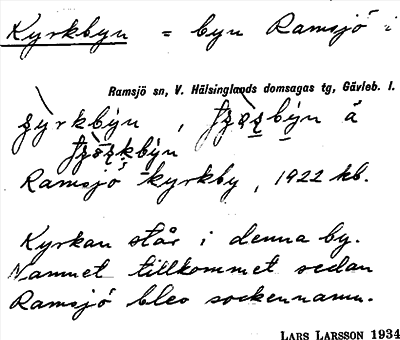 Kyrkbyn = byn Ramsjö i
Ramsjö sn, V. Hälsinglands domsagas tg, Gävleb. l.
Ramsjö kyrkby, 1922 kb.
Kyrkan står i denna by.
Namnet tillkommet sedan
Ramsjö blev sockennamn.
LARS LARSSON 1934